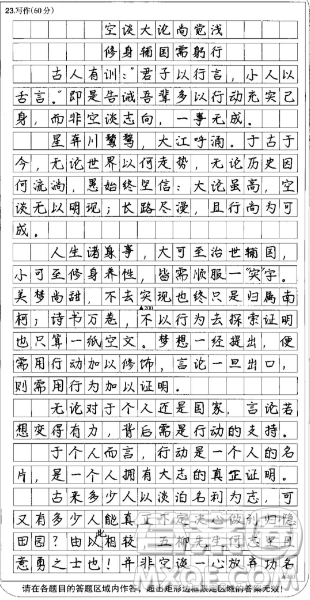 23.写作(60分)
空谈大论尚觉浅
修身辅国需躬行
古人有训:"君子以行言,小人以
舌言。"即是告诫吾辈多以行动充实己
身,而非空谈志向,一事无成。
星奔川鹜,大江呼涌。于古于
今,无论世界以何走势,无论历史因
何流淌,愚始终坚信:大论虽高,空
谈无以明现;长路尽漫,且行尚为可
成。
人生诸身事,大可至治世辅国,
小可至修身养性,皆需顺服一"实"字。
美梦尚甜,不去实现也终只是归属南
柯;诗书万卷,不以行为去探索证明
也只算一纸空文。梦想一经提出,便
需用行动加以修饰,言论一旦出口,
则需用行为加以证明。
无论对于个人还是国家,言论若
想变得有力,背后需是行动的支持。
于个人而言,行动是一个人的名
片,是一个人拥有大志的真正证明。
古来多少人以淡泊名利为志,可
又有多少人能真正不定决心做到归隐
田园?由以相较,五柳先生何志坚且
意勇之士也!并非空谈一心放弃功名
请在各题目的答题区域内作答,超出矩形边框限定区域的答案无效!